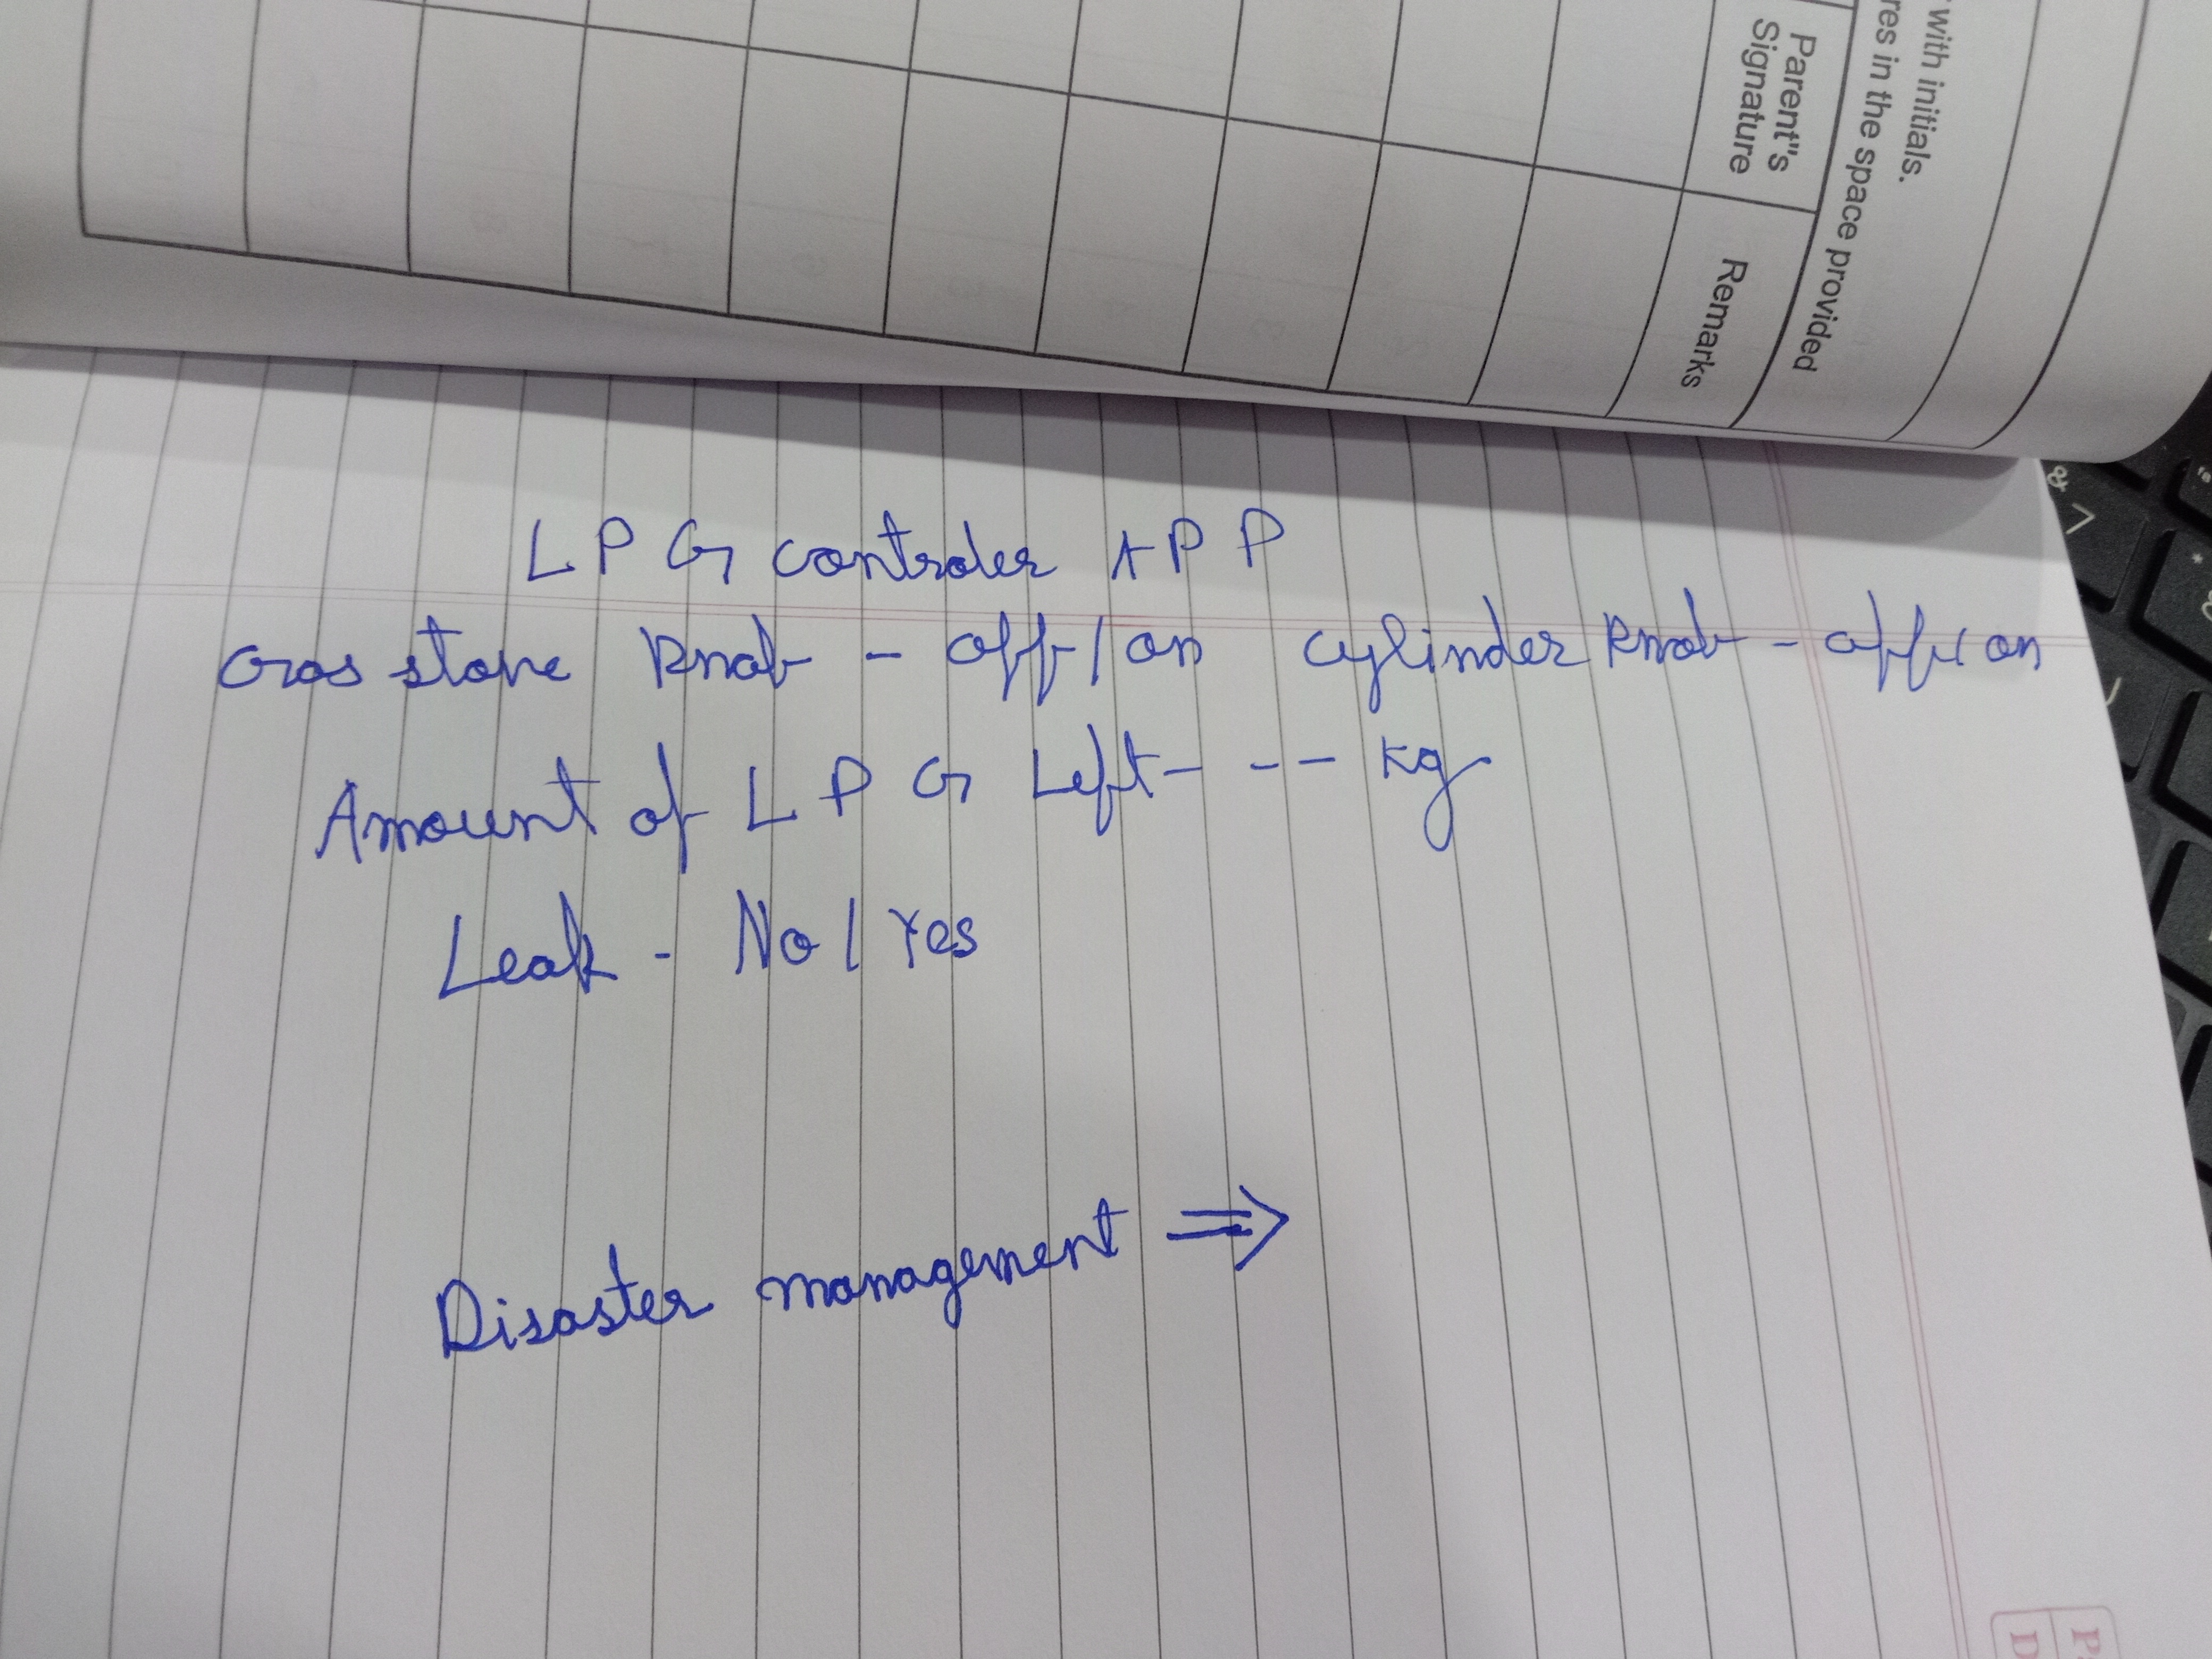 with initials.
res in the space provided
Parent"s Signature
Remarks
LPG controler APP
Gas stove knob - off / on cylinder knob - off / on
Amount of LPG Left - -- kg
Leak - No / Yes
Disaster management ⇒